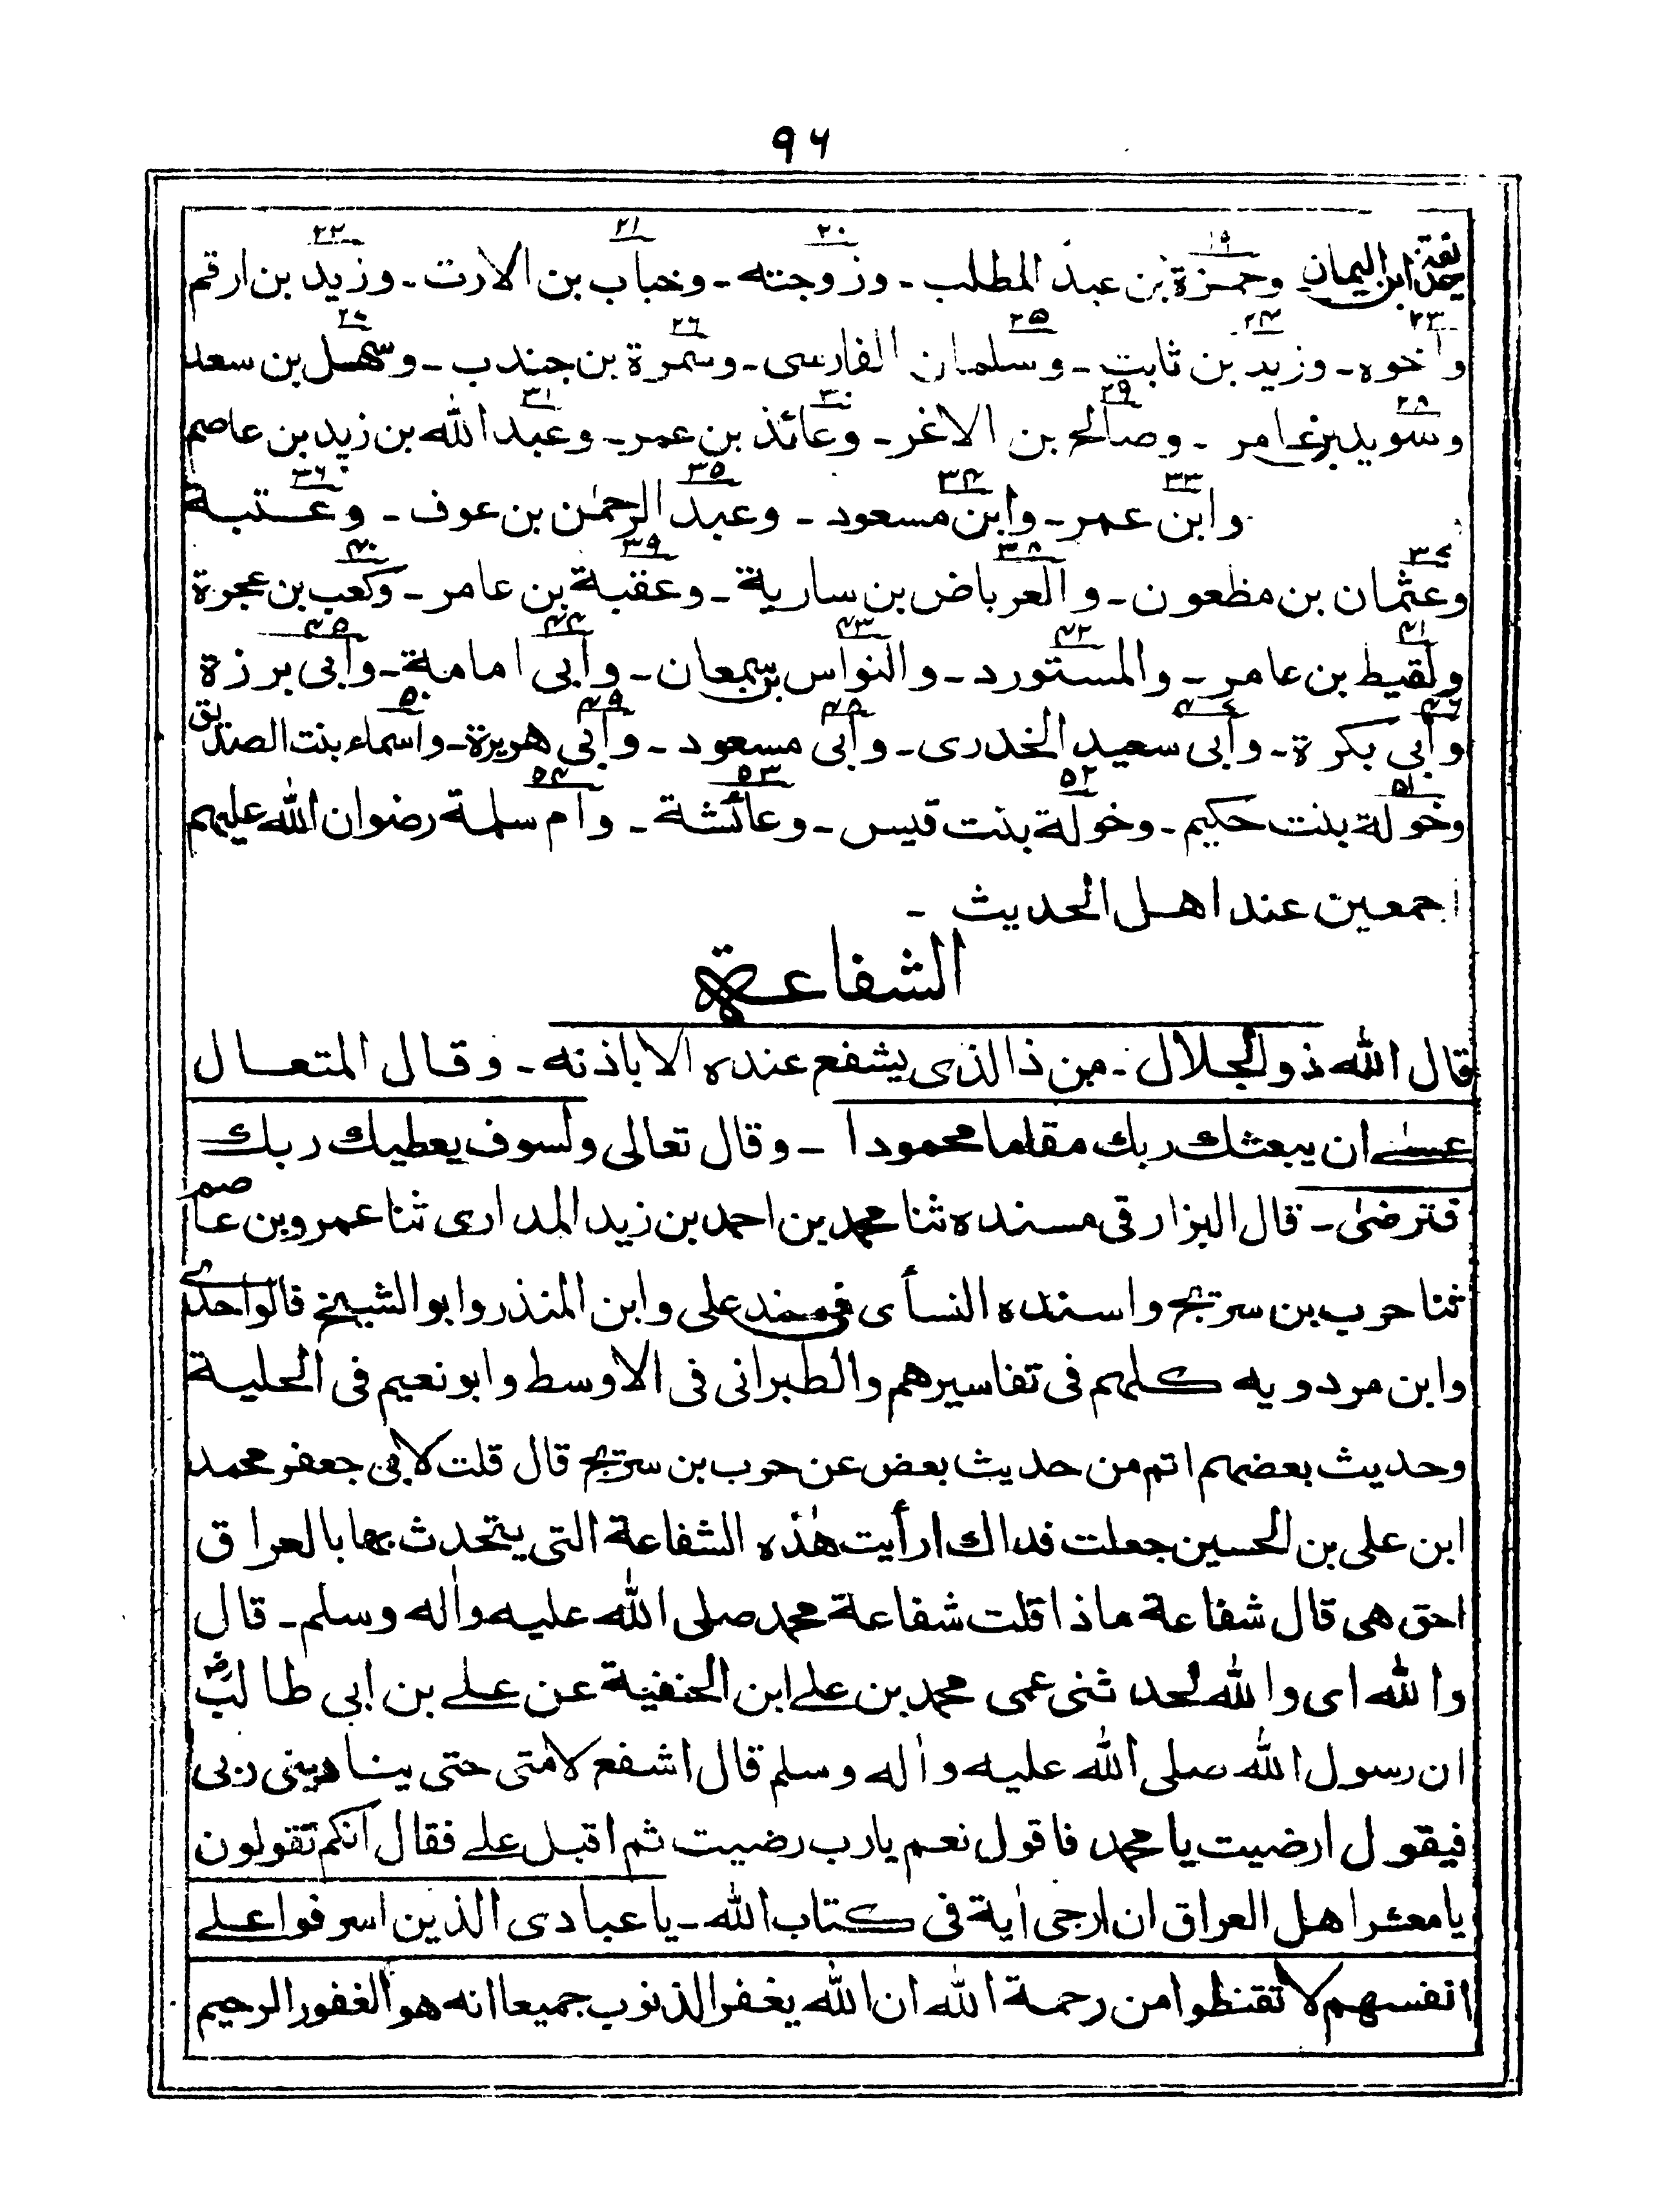 ٩٦
حذيفة ابن اليمان وحمزة بن عبد المطلب ـ وزوجته ـ وخباب بن الارت ـ وزيد بن ارقم
واخوه ـ وزيد بن ثابت ـ وسلمان الفارسى ـ وسمرة بن جندب ـ وسهل بن سعد
وسويد بن عامر ـ وصالح بن الاغر ـ وعائذ بن عمر ـ وعبد الله بن زيد بن عاصم
وابن عمر ـ وابن مسعود ـ وعبد الرحمٰن بن عوف ـ وعتبة
وعثمان بن مظعون ـ والعرباض بن سارية ـ وعقبة بن عامر ـ وكعب بن عجرة
ولقيط بن عامر ـ والمستورد ـ والنواس بن سمعان ـ وأبى امامة ـ وأبى برزة
وأبى بكرة ـ وأبى سعيد الخدرى ـ وأبى مسعود ـ وأبى هريرة ـ واسماء بنت الصديق
وخولة بنت حكيم ـ وخولة بنت قيس ـ وعائشة ـ وام سلمة رضوان الله عليهم
اجمعين عند اهل الحديث ـ
الشفاعة
قال الله ذو الجلال ـ من ذا الذى يشفع عنده الا باذنه ـ وقال المتعال
عسىٰ ان يبعثك ربك مقاما محمودا ـ وقال تعالى ولسوف يعطيك ربك
فترضىٰ ـ قال البزار فى مسنده ثنا محمد بن احمد بن زيد المدارى ثنا عمرو بن عاصم
ثنا حرب بن سريج واسنده النسأى فى مسند على وابن المنذر وابو الشيخ قالو احدى
وابن مردويه كلهم فى تفاسيرهم والطبرانى فى الاوسط وابو نعيم فى الحلية
وحديث بعضهم اتم من حديث بعض عن حرب بن سريج قال قلت لابى جعفر محمد
ابن على بن الحسين جعلت فداك ارأيت هٰذه الشفاعة التى يتحدث بها بالعراق
احق هى قال شفاعة ماذا قلت شفاعة محمد صلى الله عليه واٰله وسلم ـ قال
والله اى والله لحدثنى عمى محمد بن على ابن الحنفية عن على بن ابى طالب رض
ان رسول الله صلى الله عليه واٰله وسلم قال اشفع لامتى حتى ينادينى ربى
فيقول ارضيت يا محمد فاقول نعم يارب رضيت ثم اقبل على فقال انكم تقولون
يا معشر اهل العراق ان ارجى اٰية فى كتاب الله ـ يا عبادى الذين اسرفوا على
انفسهم لا تقنطوا من رحمة الله ان الله يغفر الذنوب جميعا انه هو الغفور الرحيم